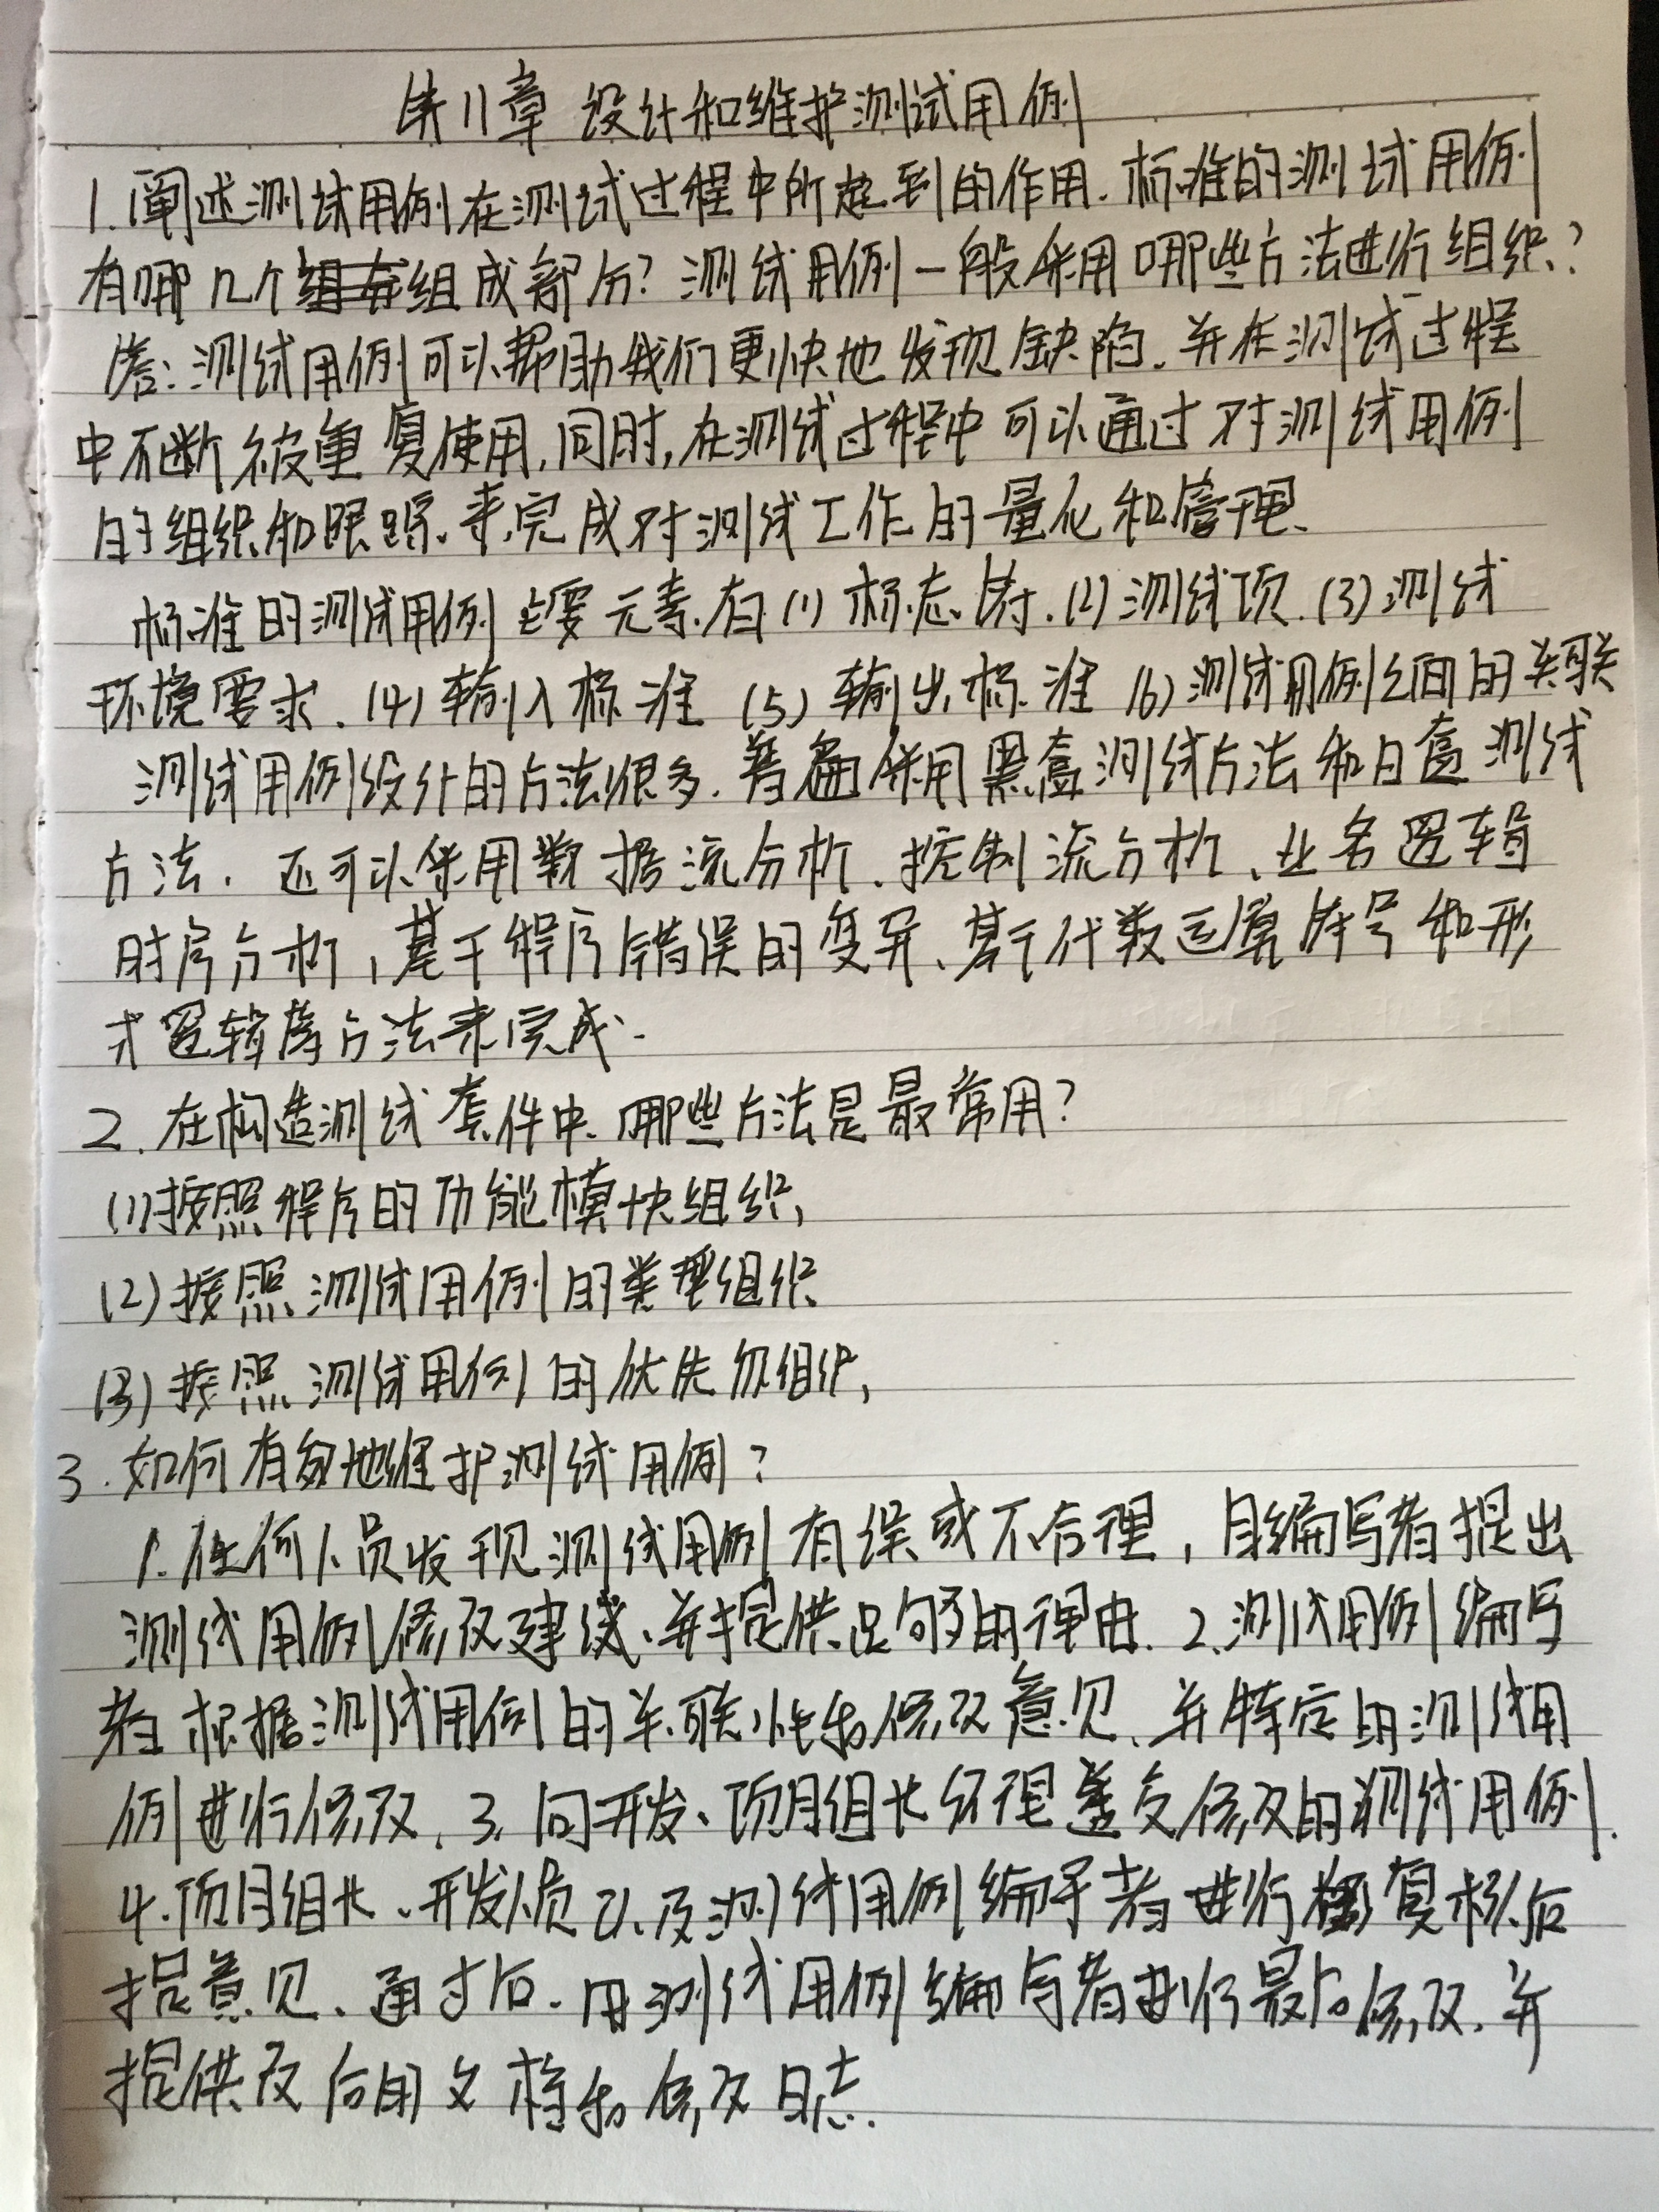 第11章 设计和维护测试用例
1.阐述测试用例在测试过程中所起到的作用.标准的测试用例
有哪几个组成部分?测试用例一般采用哪些方法进行组织?
答:测试用例可以帮助我们更快地发现缺陷.并在测试过程
中不断被重复使用,同时,在测试过程中可以通过对测试用例
的组织和跟踪.来完成对测试工作的量化和管理.
标准的测试用例主要元素有(1)标志符.(2)测试项.(3)测试
环境要求.(4)输入标准 (5)输出标准 (6)测试用例之间的关联
测试用例设计的方法很多.普遍采用黑盒测试方法和白盒测试
方法.还可以采用数据流分析、控制流分析、业务逻辑
时序分析,基于程序错误的变异、基于代数运算符号和形
式逻辑等方法来完成.
2.在构造测试套件中.哪些方法是最常用?
(1)按照程序的功能模块组织,
(2)按照测试用例的类型组织
(3)按照测试用例的优先级组织,
3.如何有效地维护测试用例?
1.任何人员发现测试用例有误或不合理,向编写者提出
测试用例修改建议、并提供足够的理由.2.测试用例编写
者根据测试用例的关联性和修改意见、并特定的测试用
例进行修改.3.向开发、项目组长经理递交修改的测试用例.
4.项目组长、开发人员以及测试用例编写者进行复核后
提意见、通过后.由测试用例编写者进行最后修改.并
提供改后的文档和修改日志.